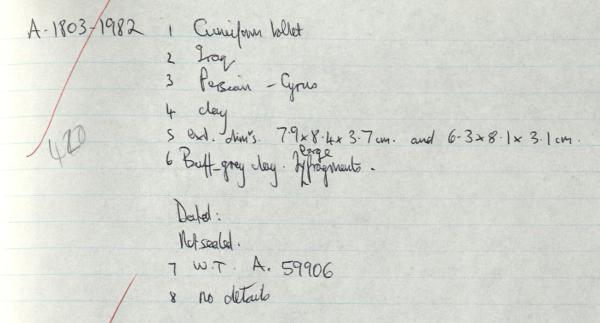 A-1803-1982 1 Cuneiform tablet
2 Iraq
3 Persian - Cyrus
4 clay
420
5 ext. dim's. 7.9 x 8.4 x 3.7 cm. and 6.3 x 8.1 x 3.1 cm.
large
6 Buff-grey clay. 2 fragments.
Dated:
Not sealed.
7 W.T. A. 59906
8 no details